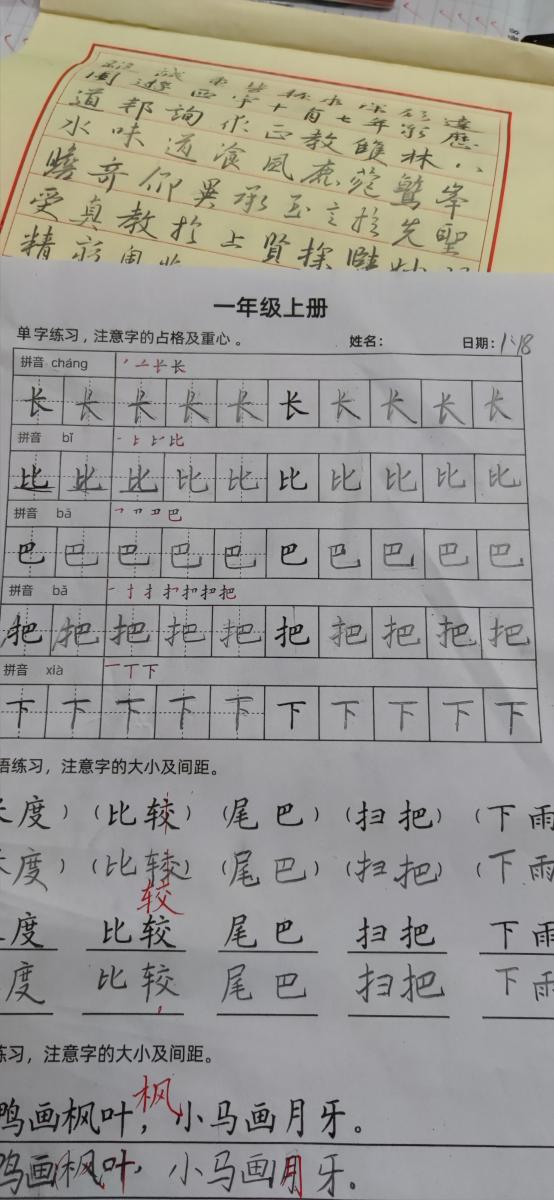 周遊西宇十有七年窮歷
道邦詢求正教雙林八
水味道飡風鹿菀鷲峯
瞻奇仰異承至言於先聖
受真教於上賢探賾妙
精窮奧
一年级上册
单字练习，注意字的占格及重心。 姓名： 日期：1.18
拼音 cháng 长
长 长 长 长 长 长 长 长 长 长
拼音 bǐ 比
比 比 比 比 比 比 比 比 比 比
拼音 bā 巴
巴 巴 巴 巴 巴 巴 巴 巴 巴 巴
拼音 bǎ 把
把 把 把 把 把 把 把 把 把 把
拼音 xià 一丅下
下 下 下 下 下 下 下 下 下 下
语练习，注意字的大小及间距。
长度）（比较）（尾巴）（扫把）（下雨
长度）（比较）（尾巴）（扫把）（下雨
较
度 比较 尾巴 扫把 下雨
度 比较 尾巴 扫把 下雨
练习，注意字的大小及间距。
枫
鸭画枫叶，小马画月牙。
鸭画枫叶，小马画月牙。